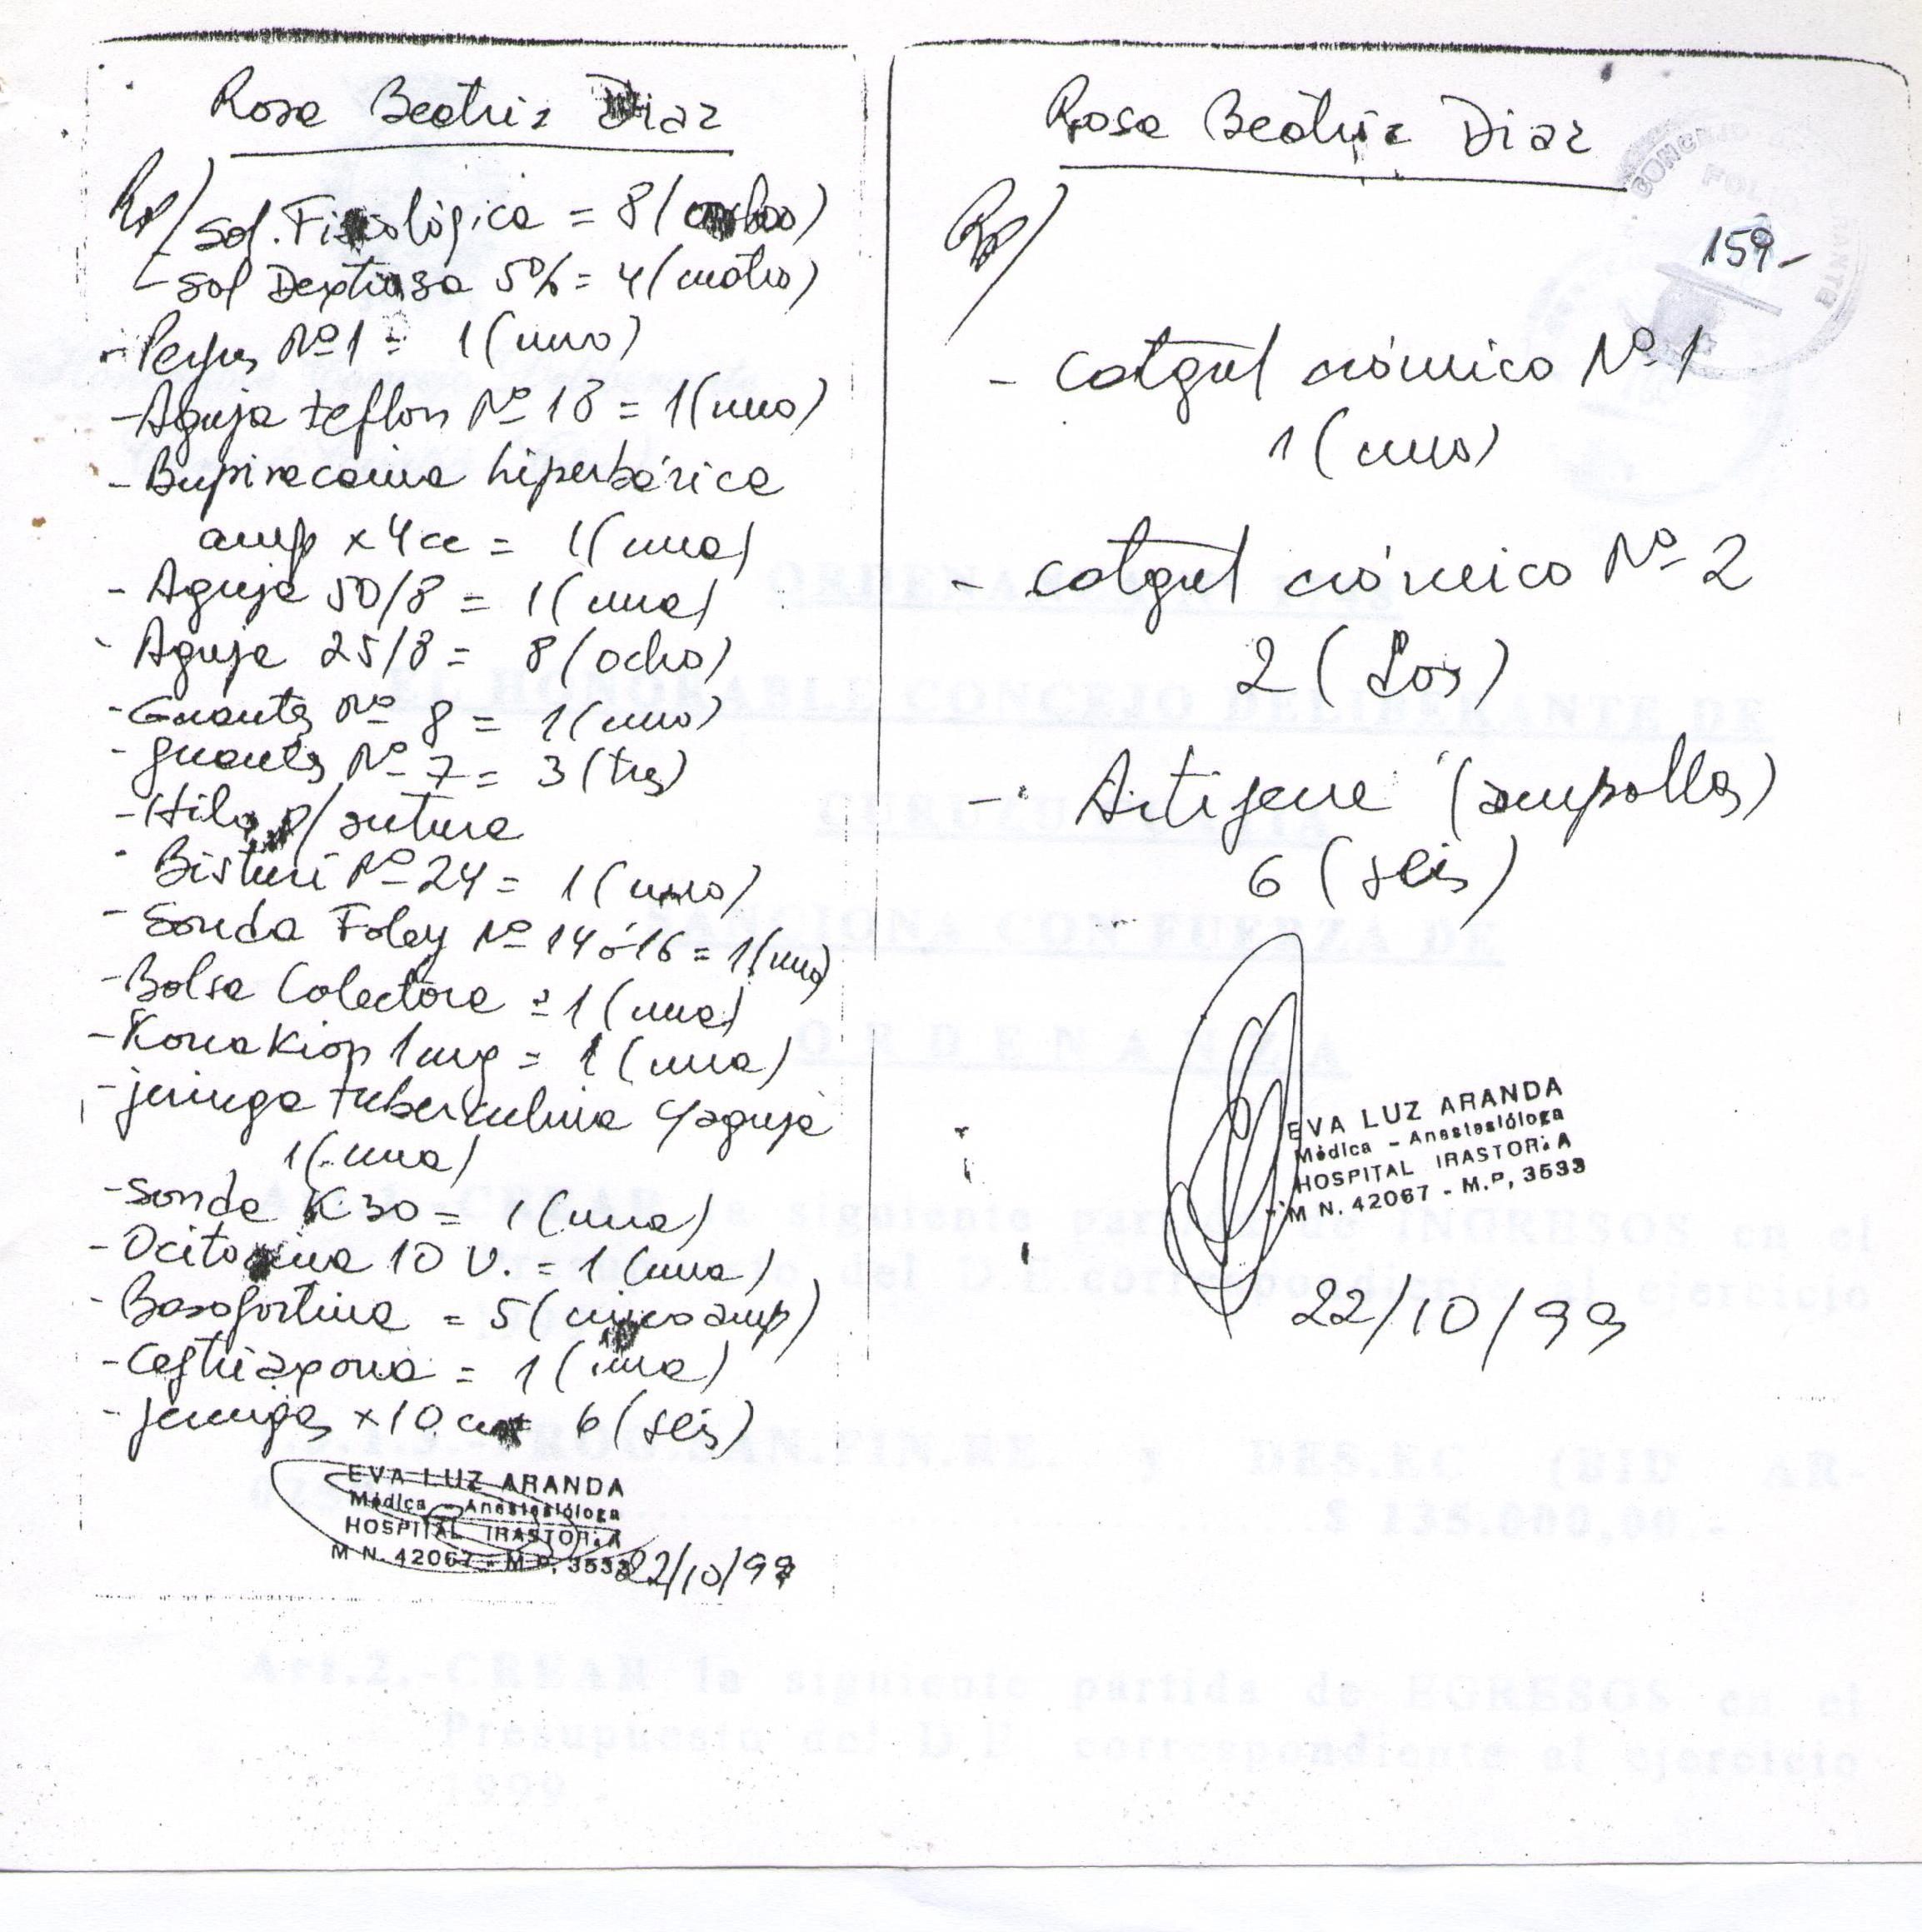 Rosa Beatriz Diaz
Rp/
Sol. Fisiológica = 8 (ocho)
Sol Dextrosa 5% = 4 (cuatro)
- Perfus Nº 1 = 1 (uno)
- Aguja teflon Nº 18 = 1 (uno)
- Bupivacaina hiperbárica
amp x 4 cc = 1 (una)
- Aguja 50/8 = 1 (una)
- Aguja 25/8 = 8 (ocho)
- Guantes Nº 8 = 1 (uno)
- guantes Nº 7 = 3 (tres)
- Hilo p/ sutura
- Bisturí Nº 24 = 1 (uno)
- Sonda Foley Nº 14 ó 16 = 1 (una)
- Bolsa Colectora = 1 (una)
- Konakion 1 mg = 1 (una)
- jeringa tuberculina c/aguja
1 (una)
- Sonda K 30 = 1 (una)
- Ocitocina 10 U. = 1 (una)
- Basofortina = 5 (cinco amp)
- Ceftriaxona = 1 (una)
- jeringas x 10 cc = 6 (seis)
EVA LUZ ARANDA
Médica - Anestesióloga
HOSPITAL IRASTORZA
M N. 42067 - M P, 3533
22/10/99
Rosa Beatriz Diaz
159-
Rp/
- catgut crómico Nº 1
1 (uno)
- catgut crómico Nº 2
2 (dos)
- Artifene (ampollas)
6 (seis)
EVA LUZ ARANDA
Médica - Anestesióloga
HOSPITAL IRASTORZA
M N. 42067 - M.P, 3533
22/10/99
ORDENANZA Nº
EL HONORABLE CONCEJO DELIBERANTE DE
CURUZU CUATIA
SANCIONA CON FUERZA DE
O R D E N A N Z A
CREAR la siguiente partida de INGRESOS en el
Presupuesto del D E correspondiente al ejercicio
DES.EC (BID AR-
$ 135.000,00.-
Art.2.-CREAR la siguiente partida de EGRESOS en el
Presupuesto del D E correspondiente al ejercicio
1999.-